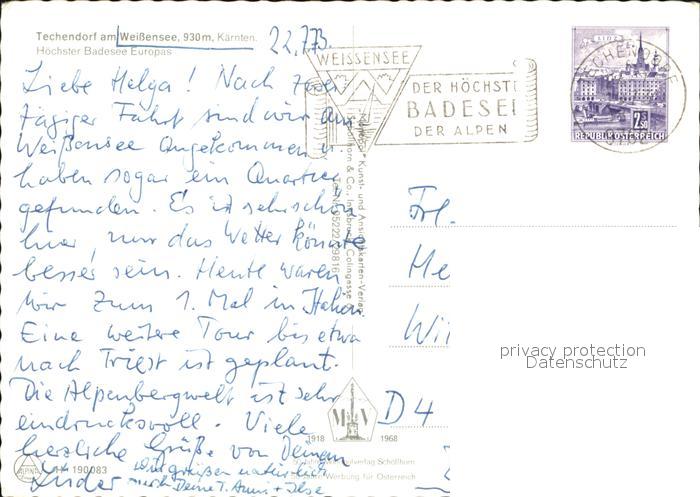 Techendorf am Weißensee, 930 m, Kärnten.
Höchster Badesee Europas
22.7.73.
Liebe Helga! Nach zwei
tägiger Fahrt sind wir am
Weißensee angekommen u.
haben sogar ein Quartier
gefunden. Es ist sehr schön
hier, nur das Wetter könnte
besser sein. Heute waren
wir zum 1. Mal in Italien
Eine weitere Tour bis etwa
nach Triest ist geplant.
Die Alpenbergwelt ist sehr
eindrucksvoll. Viele
herzliche Grüße von Deinen
Kinder
Wir grüßen natürlich
auch Deine T. Anni + Ilse
H 190083
WEISSENSEE
DER HÖCHSTE
BADESEE
DER ALPEN
LINZ
2,50
REPUBLIK ÖSTERREICH
Kunst- und Ansichtskarten-Verlag
Schöllhorn & Co., Innsbruck, Colingasse
M V
1918 1968
Frl.
He
Wi
D 4
privacy protection
Datenschutz
verlag Schöllhorn
Werbung für Österreich